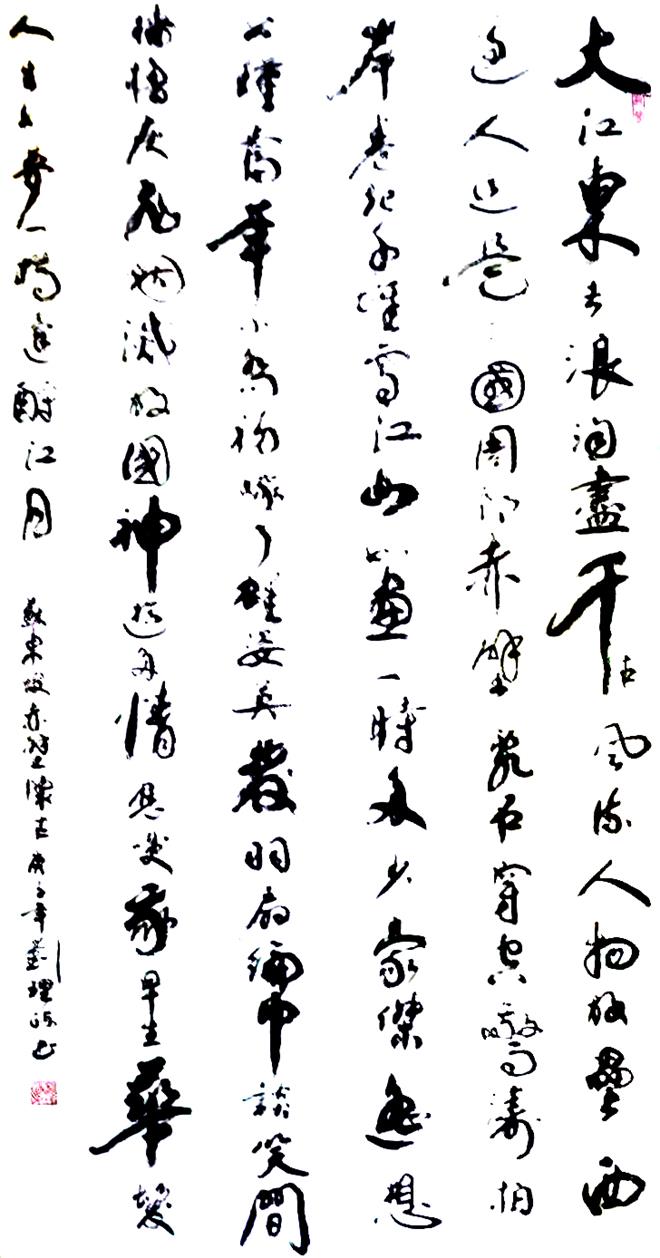 大江東去浪淘盡千古風流人物故壘西
邊人道是三國周郎赤壁亂石穿空驚濤拍
岸卷起千堆雪江山如畫一時多少豪傑遙想
公瑾當年小喬初嫁了雄姿英發羽扇綸巾談笑間
檣櫓灰飛烟滅故國神遊多情應笑我早生華髮
人生如夢一樽還酹江月
蘇東坡赤壁懷古庚子年劉理書